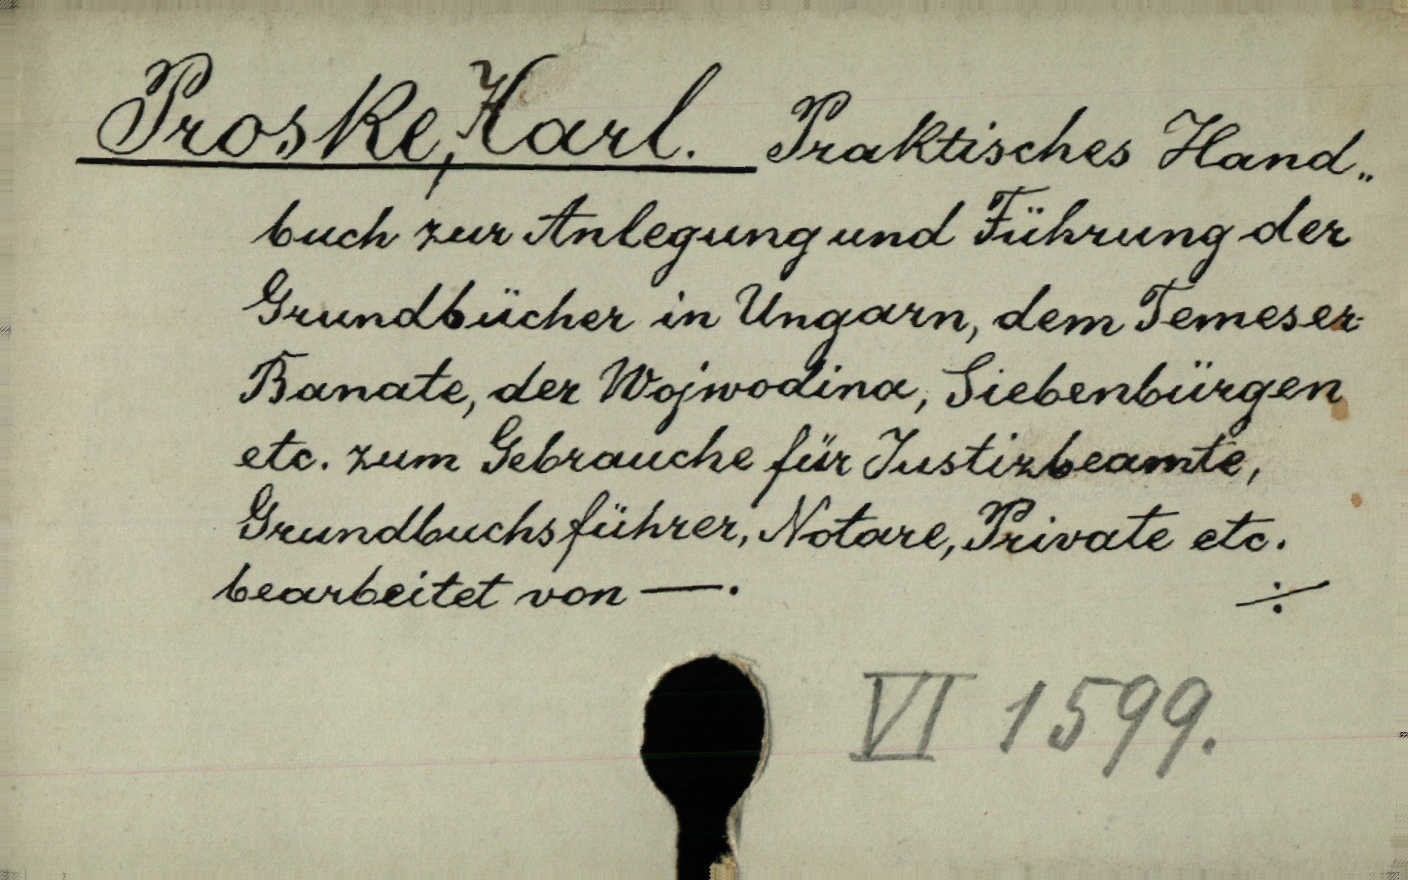 Proske, Karl. Praktisches Hand„
buch zur Anlegung und Führung der
Grundbücher in Ungarn, dem Temeser-
Banate, der Wojwodina, Siebenbürgen
etc. zum Gebrauche für Justizbeamte,
Grundbuchsführer, Notare, Private etc.
bearbeitet von —. ÷
VI 1599.